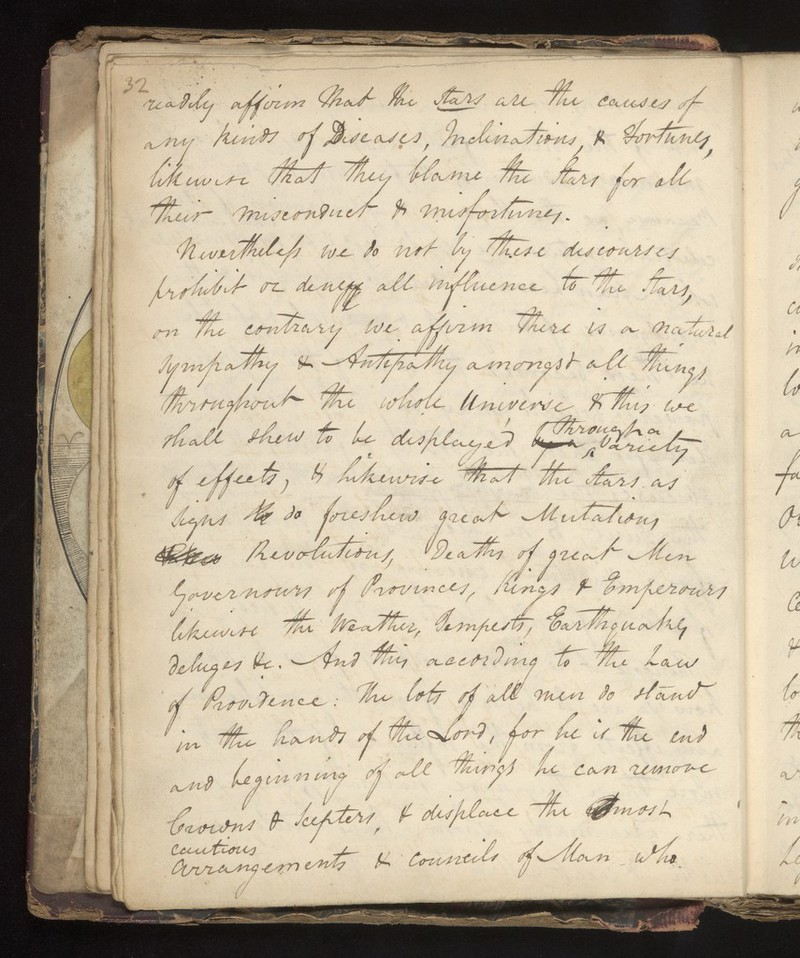 32
readily affirm that the stars are the causes of
any kinds of Diseases, Inclinations, & Fortunes,
likewise that they blame the stars for all
their misconduct & misfortunes.
Nevertheless we do not by these discourses
prohibit or deny all influence to the Stars,
on the contrary we affirm there is a natural
sympathy & Antipathy amongst all things
throughout the whole Universe & this we
shall shew to be displaye'd by a through a variety
of effects, & likewise that the stars as
signs do foreshew great Mutations
Revolutions, Deaths of great Men
Governours of Provinces, Kings & Emperours
likewise the Weather, Tempests, Earthquakes,
deluges &c. And this according to the Law
of Providence: The lots of all men do stand
in the hands of the Lord, for he is the end
and beginning of all things he can remove
Crowns & Scepters, & displace the most
cautious
arrangements & councils of Man who